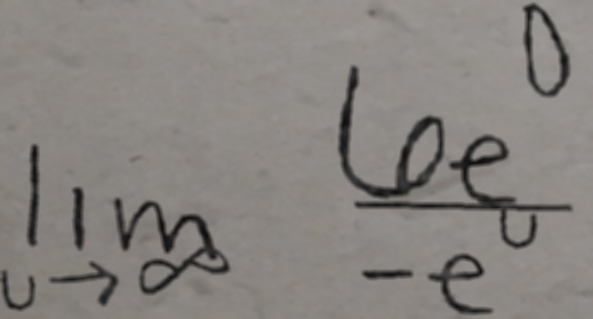 \lim_{u \to \infty} \frac{6e^{0}}{-e^{u}}